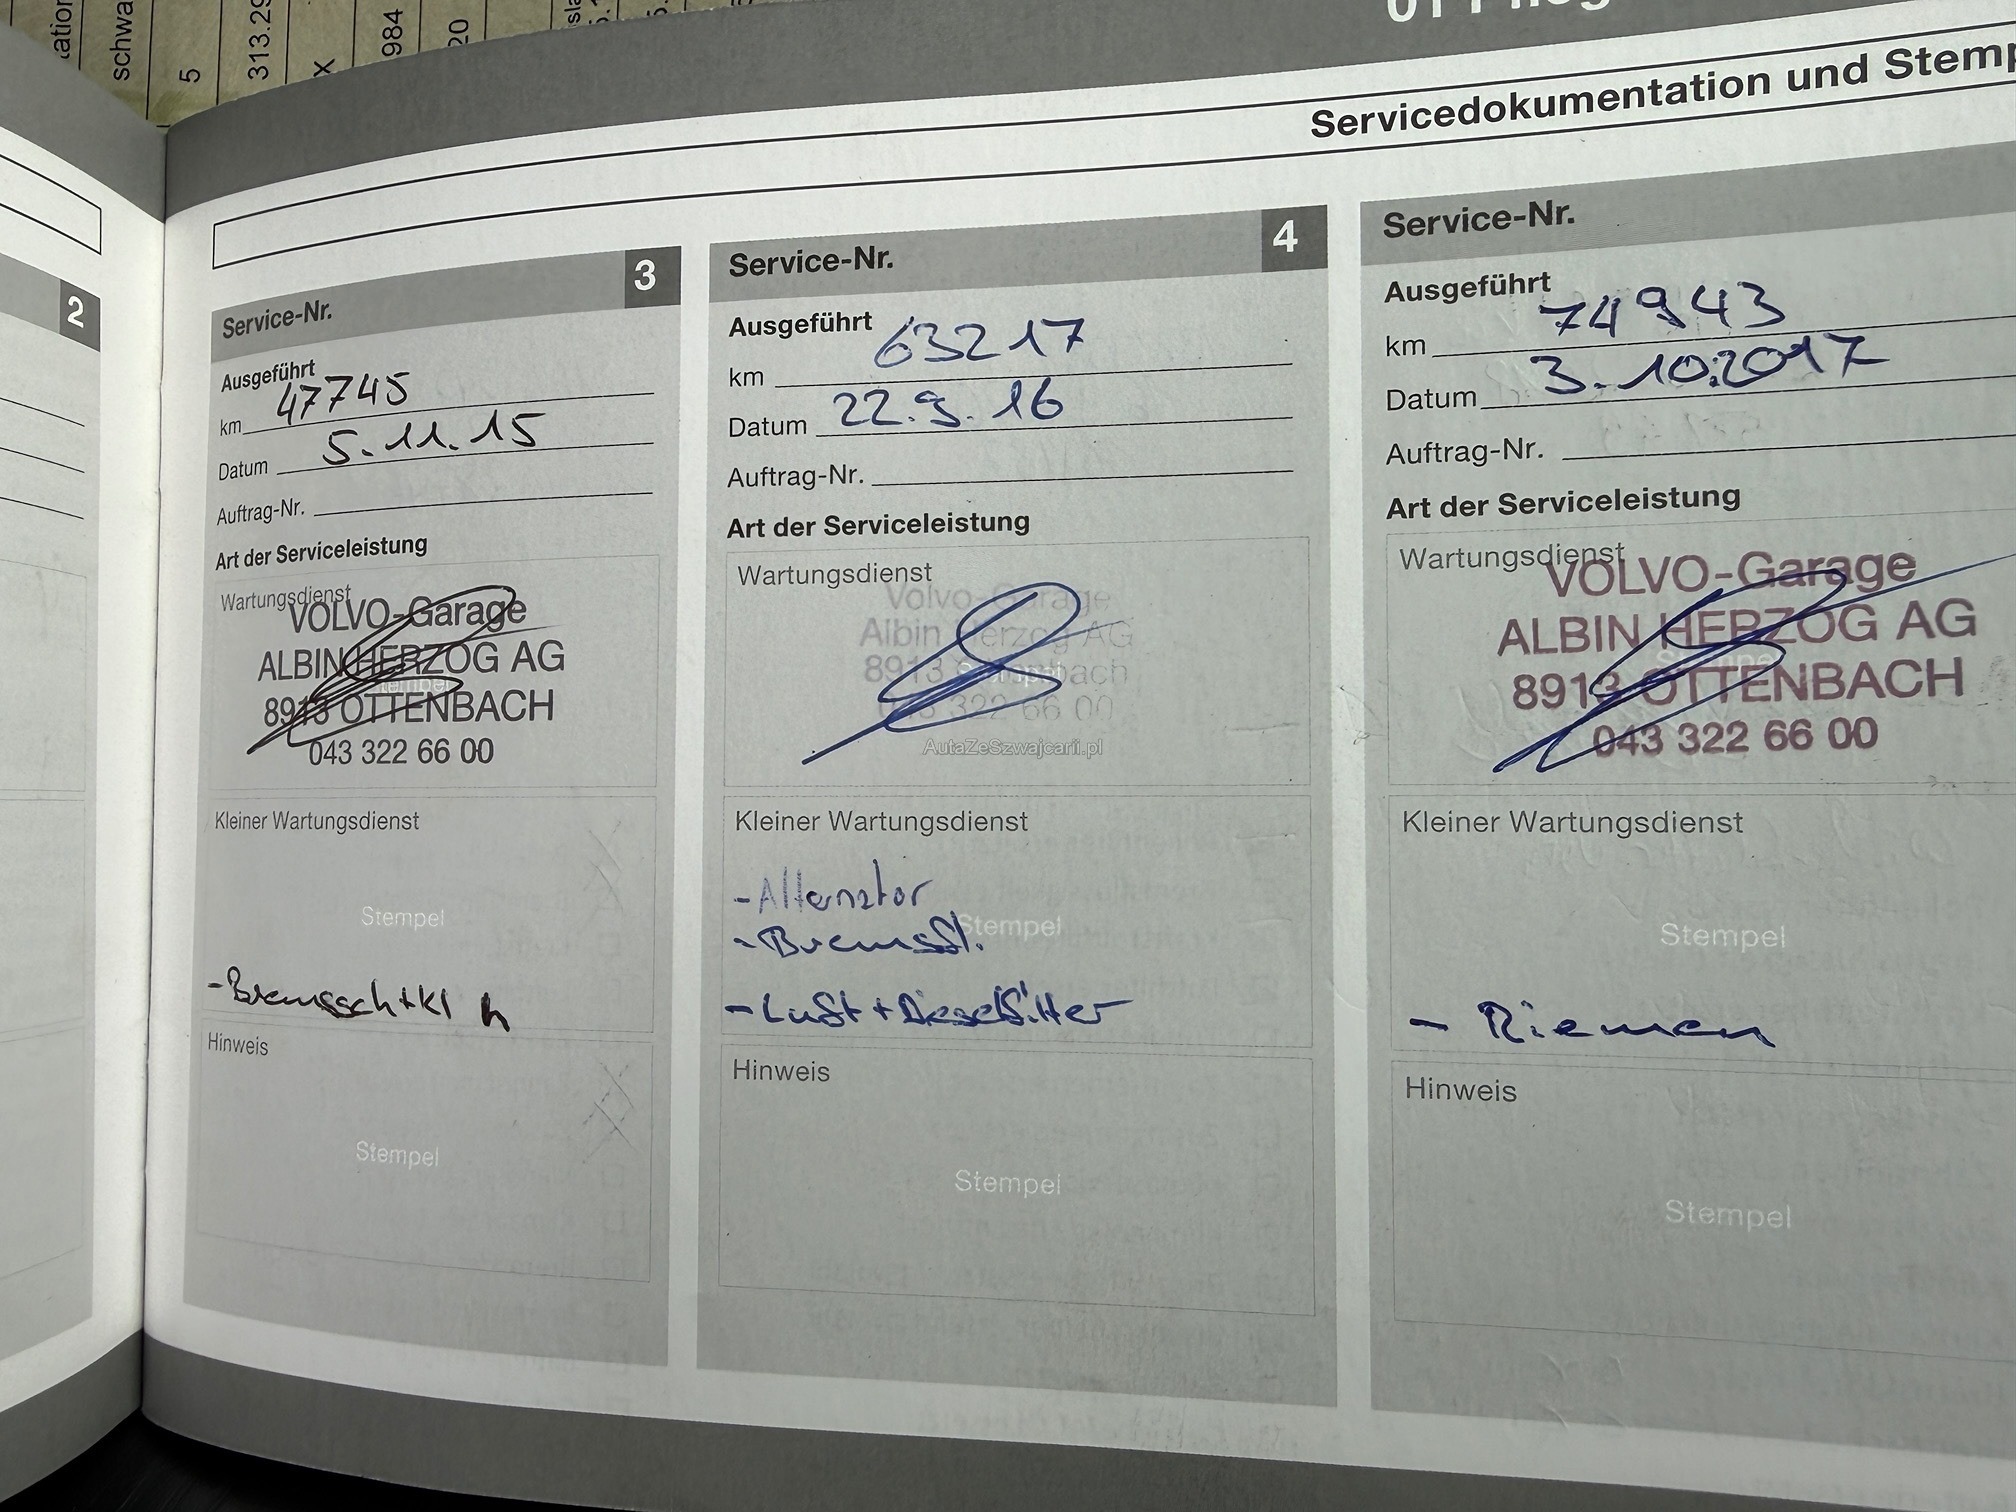 schwa
5
313.29
X
984
20
Servicedokumentation und Stemp
2
Service-Nr. 3
Ausgeführt
km 47745
Datum 5.11.15
Auftrag-Nr.
Art der Serviceleistung
Wartungsdienst
VOLVO-Garage
ALBIN HERZOG AG
8913 OTTENBACH
Stempel
043 322 66 00
Kleiner Wartungsdienst
Stempel
- Bremssch+Kl h
Hinweis
Stempel
Service-Nr. 4
Ausgeführt
km 63217
Datum 22.9.16
Auftrag-Nr.
Art der Serviceleistung
Wartungsdienst
Volvo-Garage
Albin Herzog AG
8913 Ottenbach
Stempel
043 322 66 00
AutaZeSzwajcarii.pl
Kleiner Wartungsdienst
- Alternator
Stempel
- Bremsfl.
- Luft + Dieselfilter
Hinweis
Stempel
Service-Nr.
Ausgeführt
km 74943
Datum 3.10.2017
Auftrag-Nr.
Art der Serviceleistung
Wartungsdienst
VOLVO-Garage
ALBIN HERZOG AG
Stempel
8913 OTTENBACH
043 322 66 00
Kleiner Wartungsdienst
Stempel
- Riemen
Hinweis
Stempel